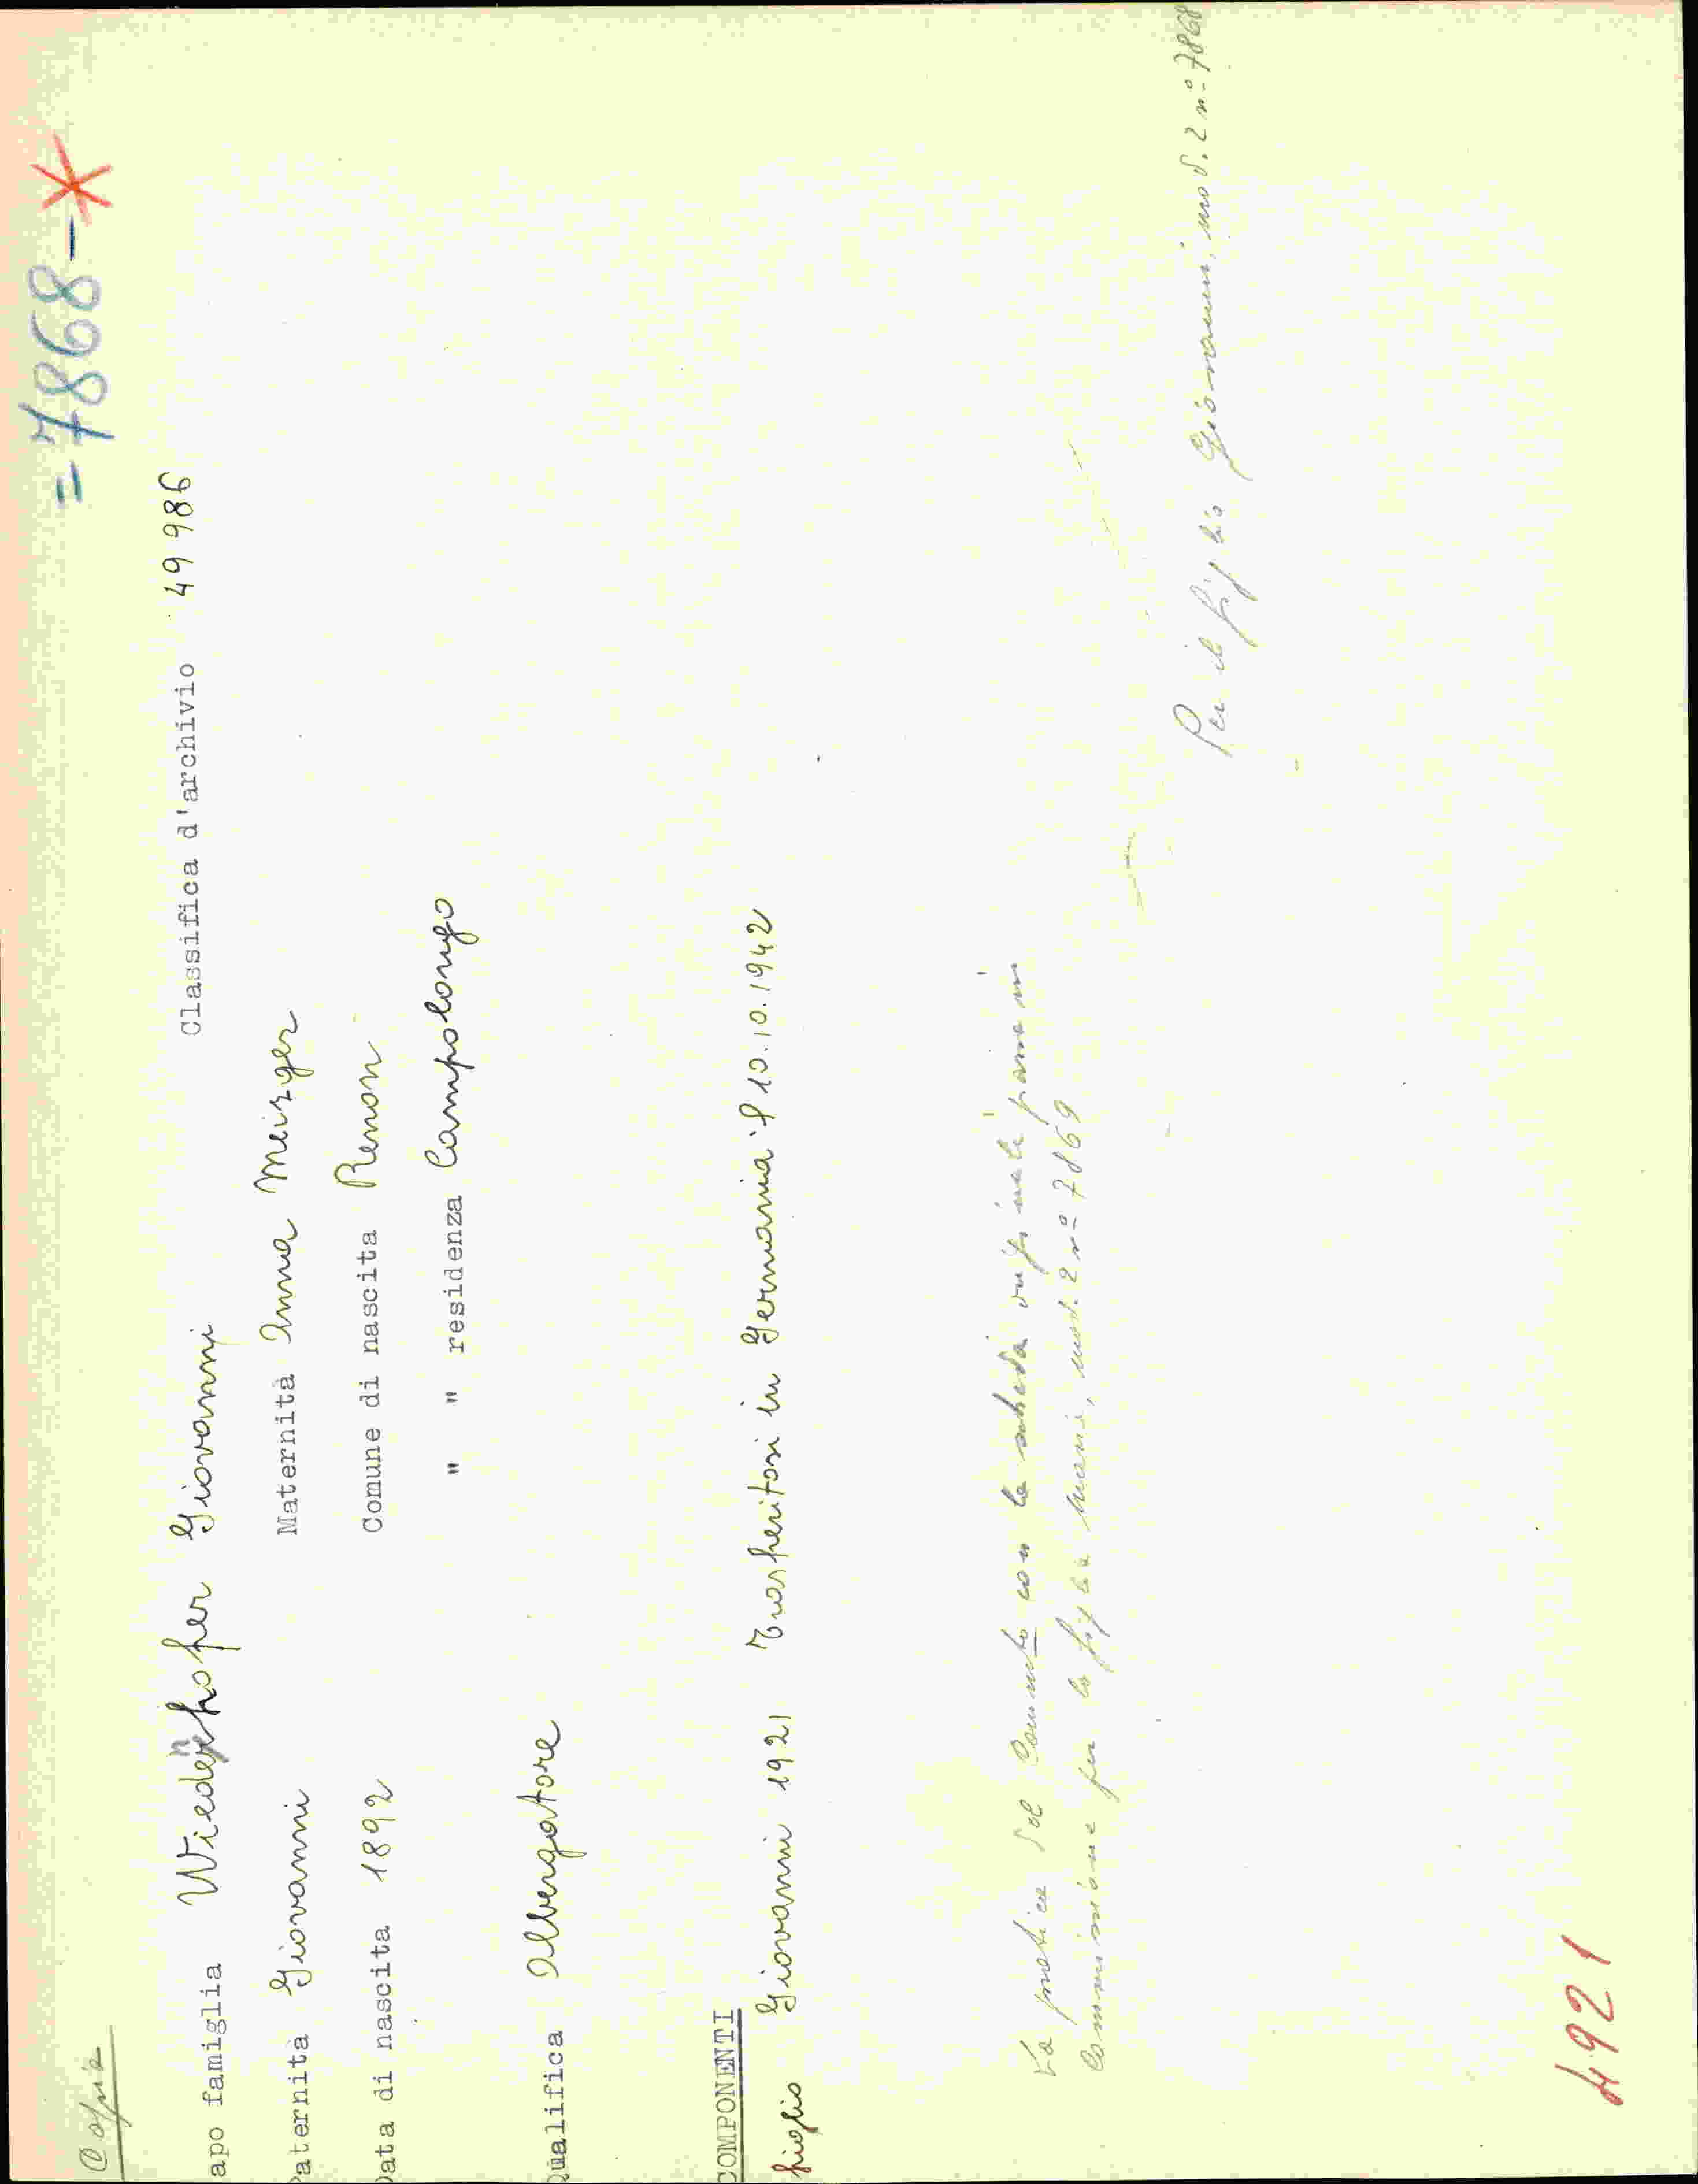 Copia
= 7868 - *
apo famiglia Wiedenhofer Giovanni Classifica d'archivio 49986
Paternità Giovanni Maternità Anna Meizger
Data di nascita 1892 Comune di nascita Renon
" " residenza Campolongo
Qualifica Albergatore
COMPONENTI
figlio Giovanni 1921 Trasferitosi in Germania il 10.10.1942
La pratica del Comunto con la scheda originale passa in
Commissione per la figlia mod. 2 n° 7869
Per il figlio Giovanni, mod. 2 n° 7868
4921